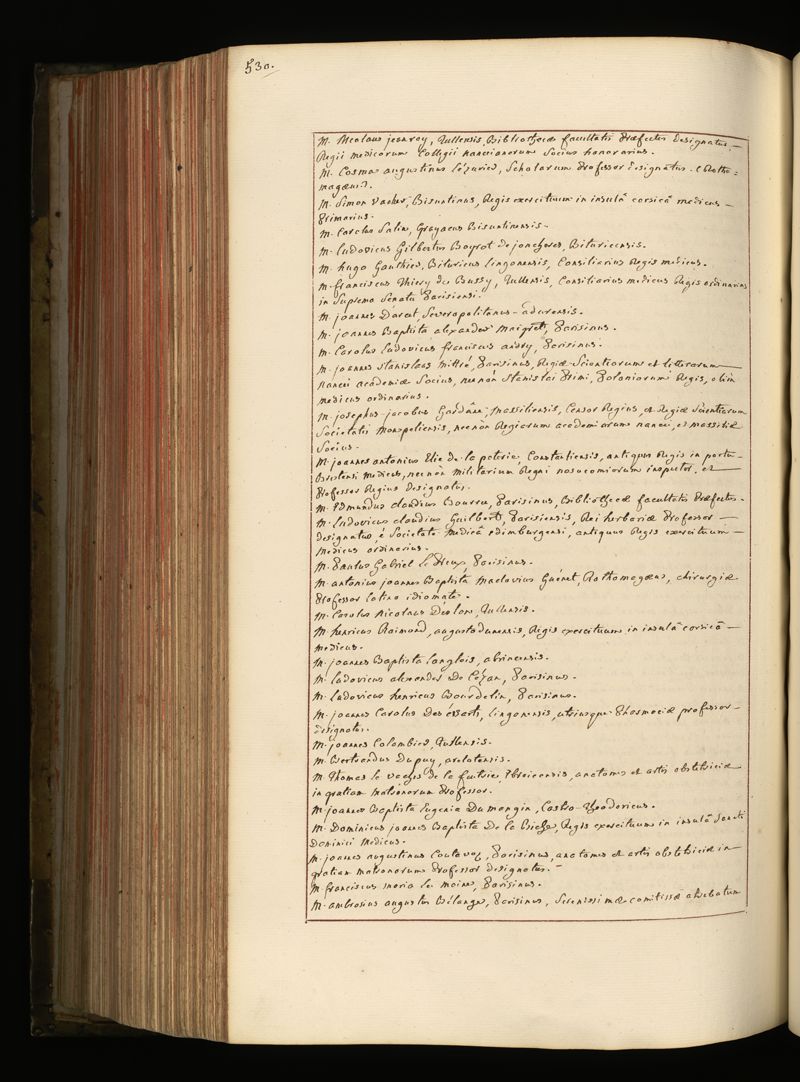 530.
M. Nicolaus jeanroy, Tullensis, Bibliothecæ facultatis Præfectus Designatus,
Regii medicorum Collegii nanceianorum Socius honorarius.
M. Cosmas augustinus Lézurier, Scholarum Professor Designatus. (Rotho=
magæus).
M. Simon Vacher, Bisuntinus, Regis exercituum in insulâ corsicâ medicus
Primarius.
M. Carolus Salin, Grayacus Bisuntinensis.
M. Ludovicus Gilbertus Boyrot de joncheres, Bituricensis.
M. hugo Gauthier, Bituricus Lingonensis, Consiliarius Regis medicus.
M. franciscus Thiery de Bussy, Tullensis, Consiliarius medicus Regis ordinarius
in Supremo Senatu Parisiensi.
M. joannes Darcet, Severopolitanus-adurensis.
M. joannes Baptista alexander maigret, Parisinus.
M. Carolus Ludovicus franciscus andry, Parisinus.
M. joannes Stanislaus Mittié, Parisinus, Regiæ Scientiarum et litterarum
Nancei academiæ Socius, necnon Stanislai Primi, Poloniarum Regis, olim
medicus ordinarius.
M. josephus-jacobus Gardane, Massiliensis, Censor Regius, et Regiæ Scientiarum
Societatis Monspeliensis, necnon Regiarum academiarum nancei, et massiliæ
Socius.
M. joannes antonius Elie de la poterie Constantiensis, antiquus Regis in portu
Brestensi medicus, necnon Militarium Regni nosocomiorum inspector, et
Professor Regius Designatus.
M. Edmundus claudius Bourru, Parisinus, Bibliothecæ facultatis Præfectus.
M. Ludovicus claudius Guilbert, Parisiensis, Rei herbariæ Professor
designatus, é Societate Medicâ edimburgensi, antiquus Regis exercituum
Medicus ordinarius.
M. Paulus Gabriel Le Preux, Parisinus.
M. antonius joannes Baptista Maclovius Guénet, Rothomagæus, chirurgiæ
Professor latino idiomate.
M. Carolus Nicolaus Deslon, Tullensis.
M. henricus Raimond, augustodunensis, Regis exercituum in insulâ corsicâ
medicus.
M. joannes Baptista Langlois, abrincensis.
M. ludovicus alexander De Cézan, Parisinus.
M. ludovicus henricus Bourdelin, Parisinus.
M. joannes Carolus Desessarts, Lingonensis, utriusque Pharmaciæ professor
designatus.
M. joannes Colombier, Tullensis.
M. Bertrandus Dupuy, arelatensis.
M. Thomas le vacher de la feutrie, Ebroicensis, anatomes et artis obstetriciæ
in gratiam Matronarum Professor.
M. joannes Baptista Eugenia Dumangin, Castro-Theodoricus.
M. Dominicus joannes Baptista De la, Regis exercituum in insulâ Sancti
Dominici Medicus.
M. joannes augustinus Coutavoz, Parisinus, anatomes et artis obstetriciæ in
gratiam matronarum Professor designatus.
M. franciscus maria le moine, Parisinus.
M. ambrosius augustus Bélanger, Parisinus, Serenissimæ comitissæ atrebatum